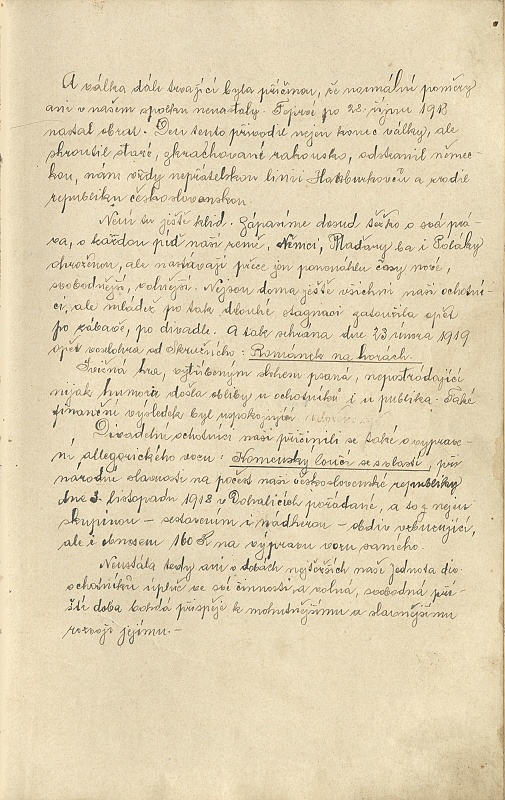 A válka dále trvající byla příčinou, že normální poměry
ani v našem spolku nenastaly. Teprvé po 28. říjnu 1918
nastal obrat. Den tento přivodil nejen konec války, ale
skroutil staré, zkrachované rakousko, odstranil němec-
kou, nám vždy nepřátelskou linii Habsburkovců a zrodil
republiku československou.
Není tu ještě klid. Zápasíme dosud těžko o svá prá-
va, o každou píď naší země, Němci, Maďary ba i Poláky
ohroženou, ale nastávají přece jen ponenáhlu časy nové,
svobodnější, volnější. Nejsou doma ještě všichni naši ochotní-
ci, ale mládež po tak dlouhé stagnaci zatoužila opět
po zábavě, po divadle. A tak sehrána dne 23. února 1919
opět veselohra od Skružného: Románek na horách.
Svěžná hra, vytříbeným slohem psaná, nepostrádající
nijak humoru došla obliby u ochotníků i u publika. Také
finanční výsledek byl uspokojující
Divadelní ochotníci naši přičinili se také o vyprave-
ní allegorického vozu: "Komenský loučí se s vlastí", při
národní slavnosti na počest naší československé republiky
dne 3. listopadu 1918 v Dohalicích pořádané, a to nejen
skupinou – sestavením i nádherou – obdiv vzbuzující,
ale i obnosem 160 K na výpravu vozu samého.
Neustála tedy ani v dobách nejtěžších naše jednota div.
ochotníků úplně ve své činnosti, a volná, svobodná pří-
ští doba bohdá přispěje k mohutnějšímu a slavnějšímu
rozvoji jejímu. –